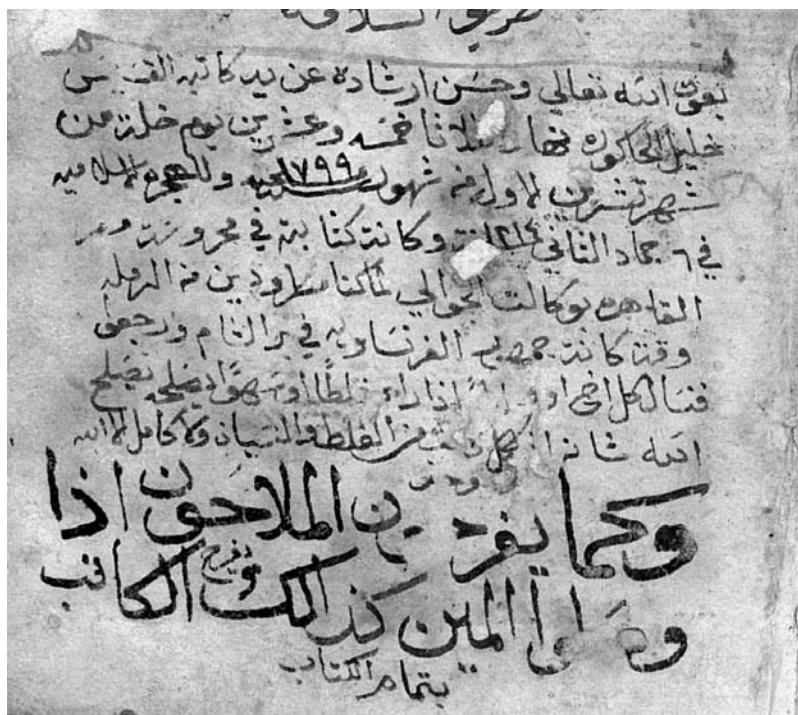 بعون الله تعالي وحسن ارشاده عن يد كاتبه القسيس
خليل الحاكوره نهار خمسه وعشرين يوم خلت من
شهر تشرين الاول من شهور سنة ١٧٩٩ وللهجرة الاسلاميه
في ٦ جماد الثاني ١٢١٤ وكانت كتابته في محروست مصر
القاهره بوكالت الحوالي لما كنا من الرمله
وقت كانت جمهور الفرنساويه في بر الشام ورجعو
فنسال كل اخي اذا راء غلطًا او سهوًا يصلحه يصلح
الله شانه من الغلط والنسيان ولا كامل الا الله
وكما يفرحون الملاحون اذا
وصلوا المين كذالك يفرح الكاتب
بتمام الكتاب